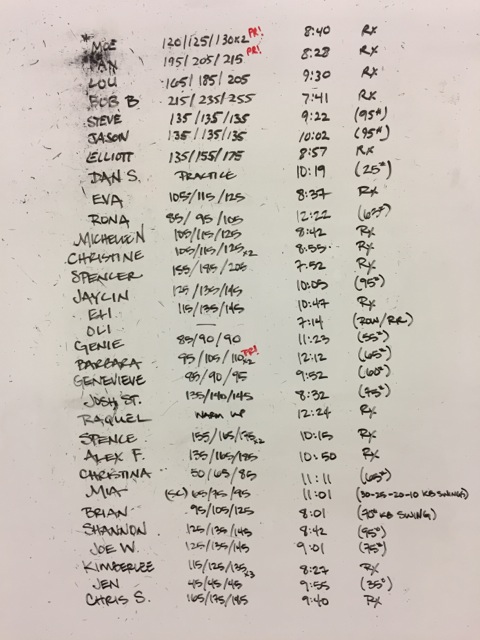 MOE 120/125/130x2 PR! 8:40 RX
195/205/215 PR! 8:28 RX
LOU 165/185/205 9:30 RX
BOB B 215/235/255 7:41 RX
STEVE 135/135/135 9:22 (95#)
JASON 135/135/135 10:02 (95#)
ELLIOTT 135/155/175 8:57 RX
DAN S. PRACTICE 10:19 (25#)
EVA 105/115/125 8:37 RX
RONA 85/95/105 12:22
MICHELE N 105/115/125 8:42 RX
CHRISTINE 105/115/125x2 8:55 RX
SPENCER 155/185/205 7:52 RX
JAYLIN 125/135/145 10:05 (95#)
115/135/145 10:47 RX
OLI — 7:14 (ROW/RR)
GENIE 85/90/90 11:23 (55#)
BARBARA 95/105/110x2 PR! 12:12 (65#)
GENEVIEVE 85/90/95 9:52 (60#)
JOSH ST. 135/140/145 8:32 (75#)
RAQUEL WARM UP 12:24 RX
SPENCE 155/165/175x2 10:15 RX
ALEX F. 135/165/185 10:50 RX
CHRISTINA 50/65/85 11:11 (65#)
MIA (SC) 65/75/95 11:01 (30-25-20-10 KB SWINGS)
BRIAN 95/105/125 8:01 (70# KB SWING)
SHANNON 125/135/145 8:42 (95#)
JOE W. 125/135/145 9:01 (75#)
KIMBERLEE 115/125/135 8:27 RX
JEN 45/45/45x3 9:55 (35#)
CHRIS S. 165/175/185 9:40 RX